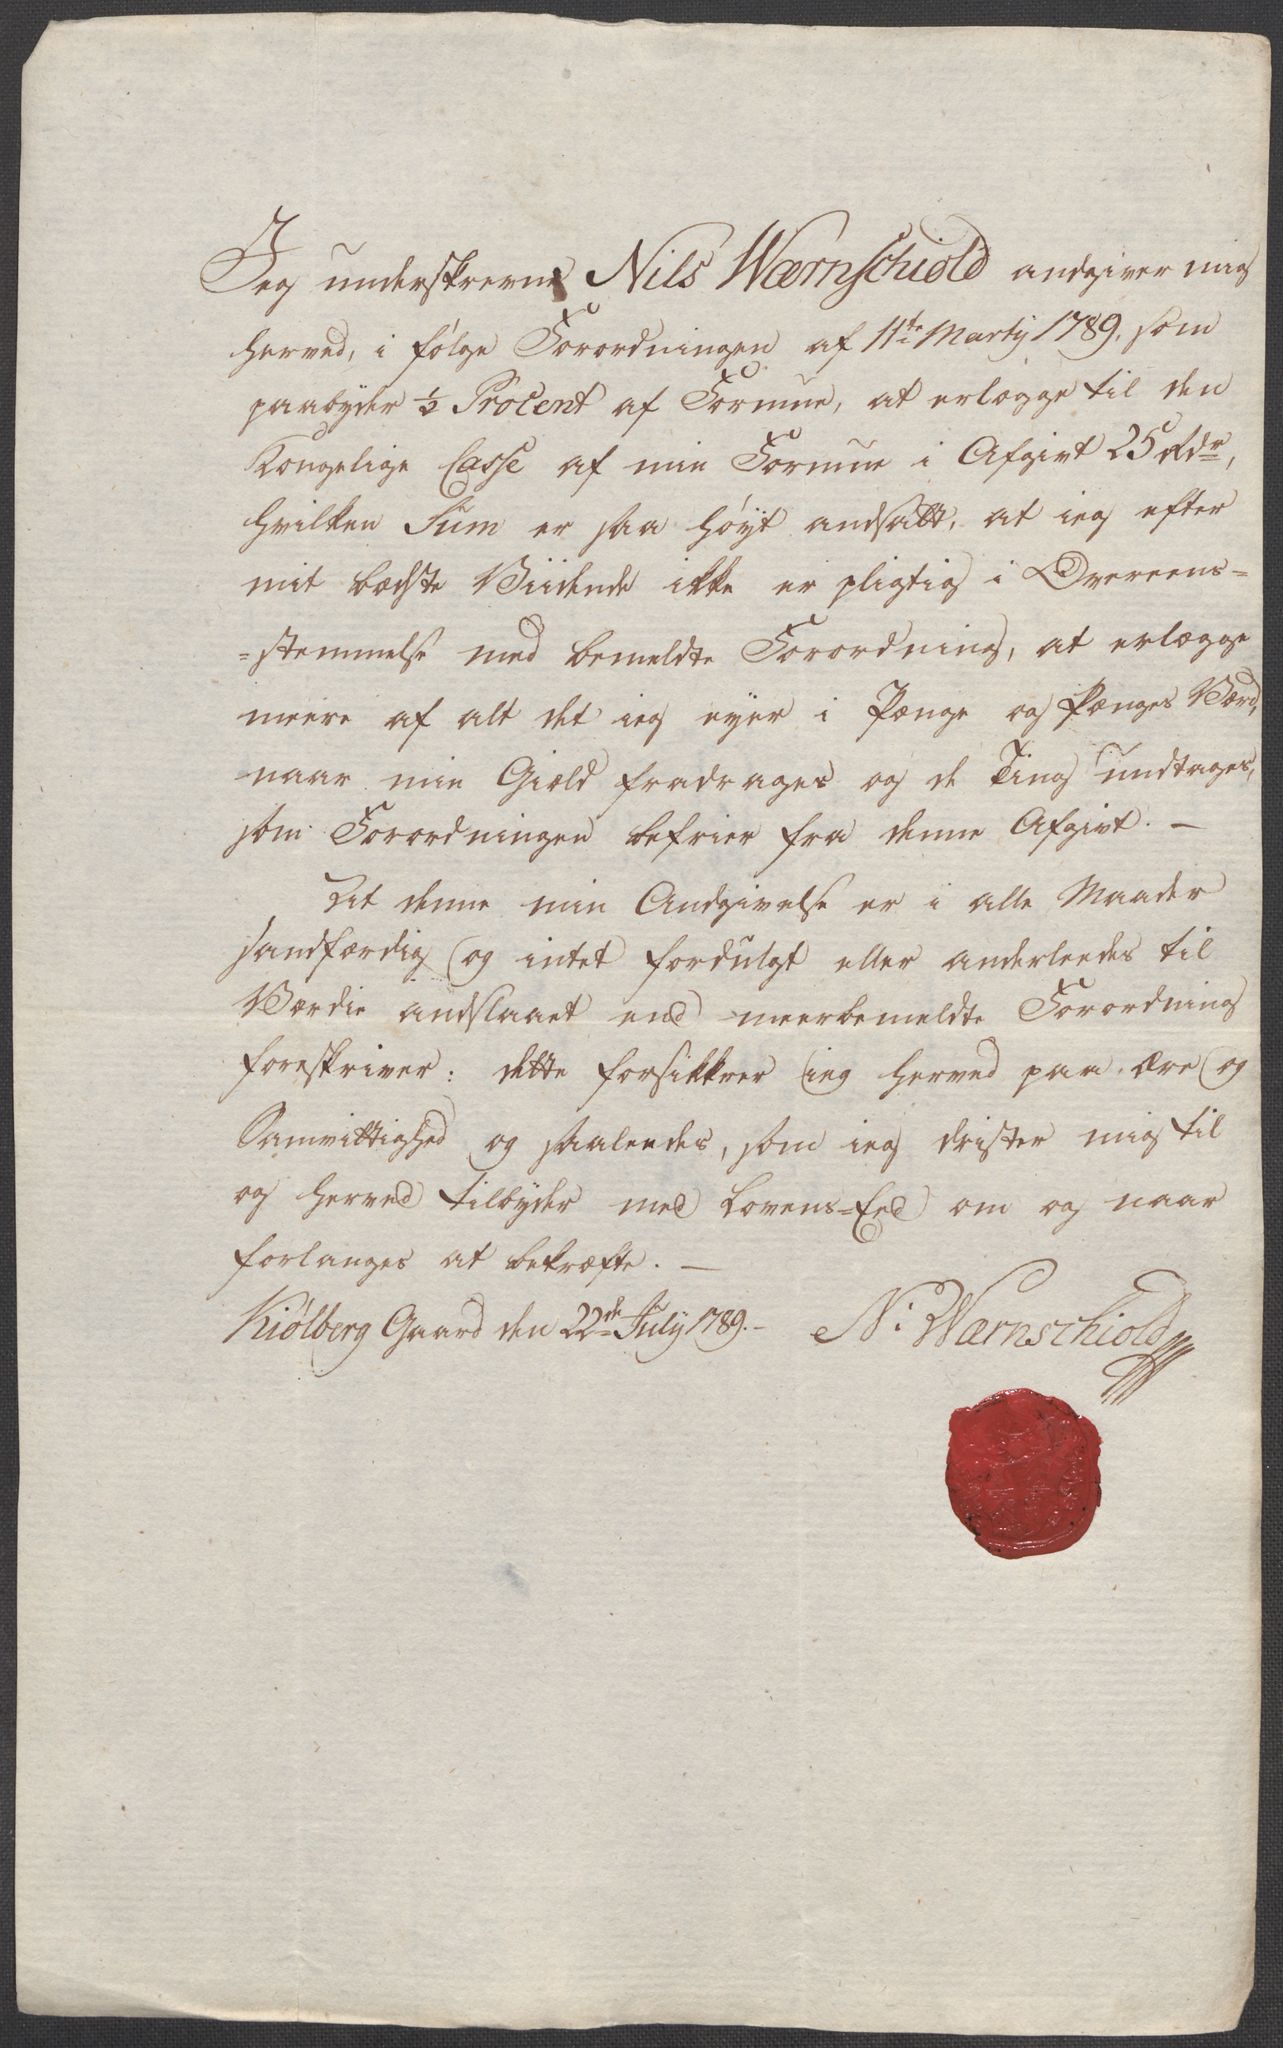 Jeg underskrevne Nils Wærnschiold andgiver mig
herved, i følge Forordningen af 11te Martij 1789. som
paabyder ½ Procent af Formue, at erlægge til den
Kongelige Casse af min Formue i Afgivt 25 Rdr,
hvilken Sum er saa høyt andsatt, at ieg efter
mit bædste Viidende ikke er pligtig i Overeens=
=stemmelse med bemeldte Forordning, at erlægge
meere af alt det ieg eyer i Penge og Penges Værd,
naar min Giæld fradrages og de Ting undtages,
som Forordningen befrier fra denne Afgivt. —
At denne min Andgivelse er i alle Maader
sandfærdig og intet fordulgt eller anderleedes til
Værdie andslaaet end meerbemeldte Forordning
foreskriver: dette forsikkrer ieg herved paa ære og
Samvittighed og saaleedes, som ieg drister mig til
og herved tilbyder med Lovens=Eed om og naar
forlanges at bekræfte. —
Kiølberg Gaard den 22de July 1789. — N: Wærnschiold